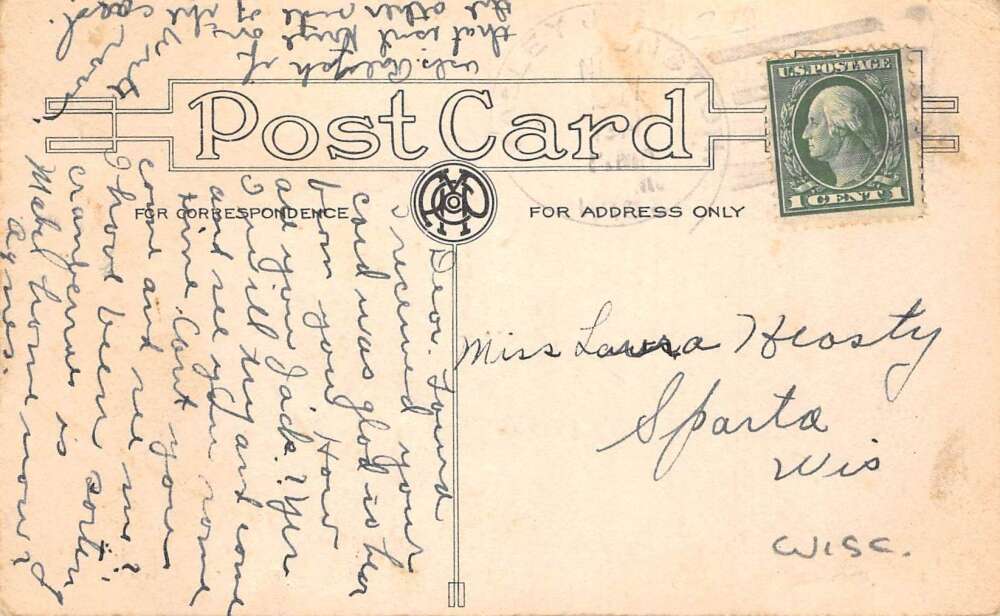 Post Card
FOR CORRESPONDENCE
FOR ADDRESS ONLY
U.S. POSTAGE
1 CENT 1
Miss Laura Heosty
Sparta
Wis
WISC.
Dear
I received your
card was glad to hear
from you. How
are you Jack? Yes
I will try and come
and see you some
time. Can't you
come and see me?
I have been sorting
cranberries is
Mabel home now?
Agnes.
Write
soon
that isn't
the other side of the card.